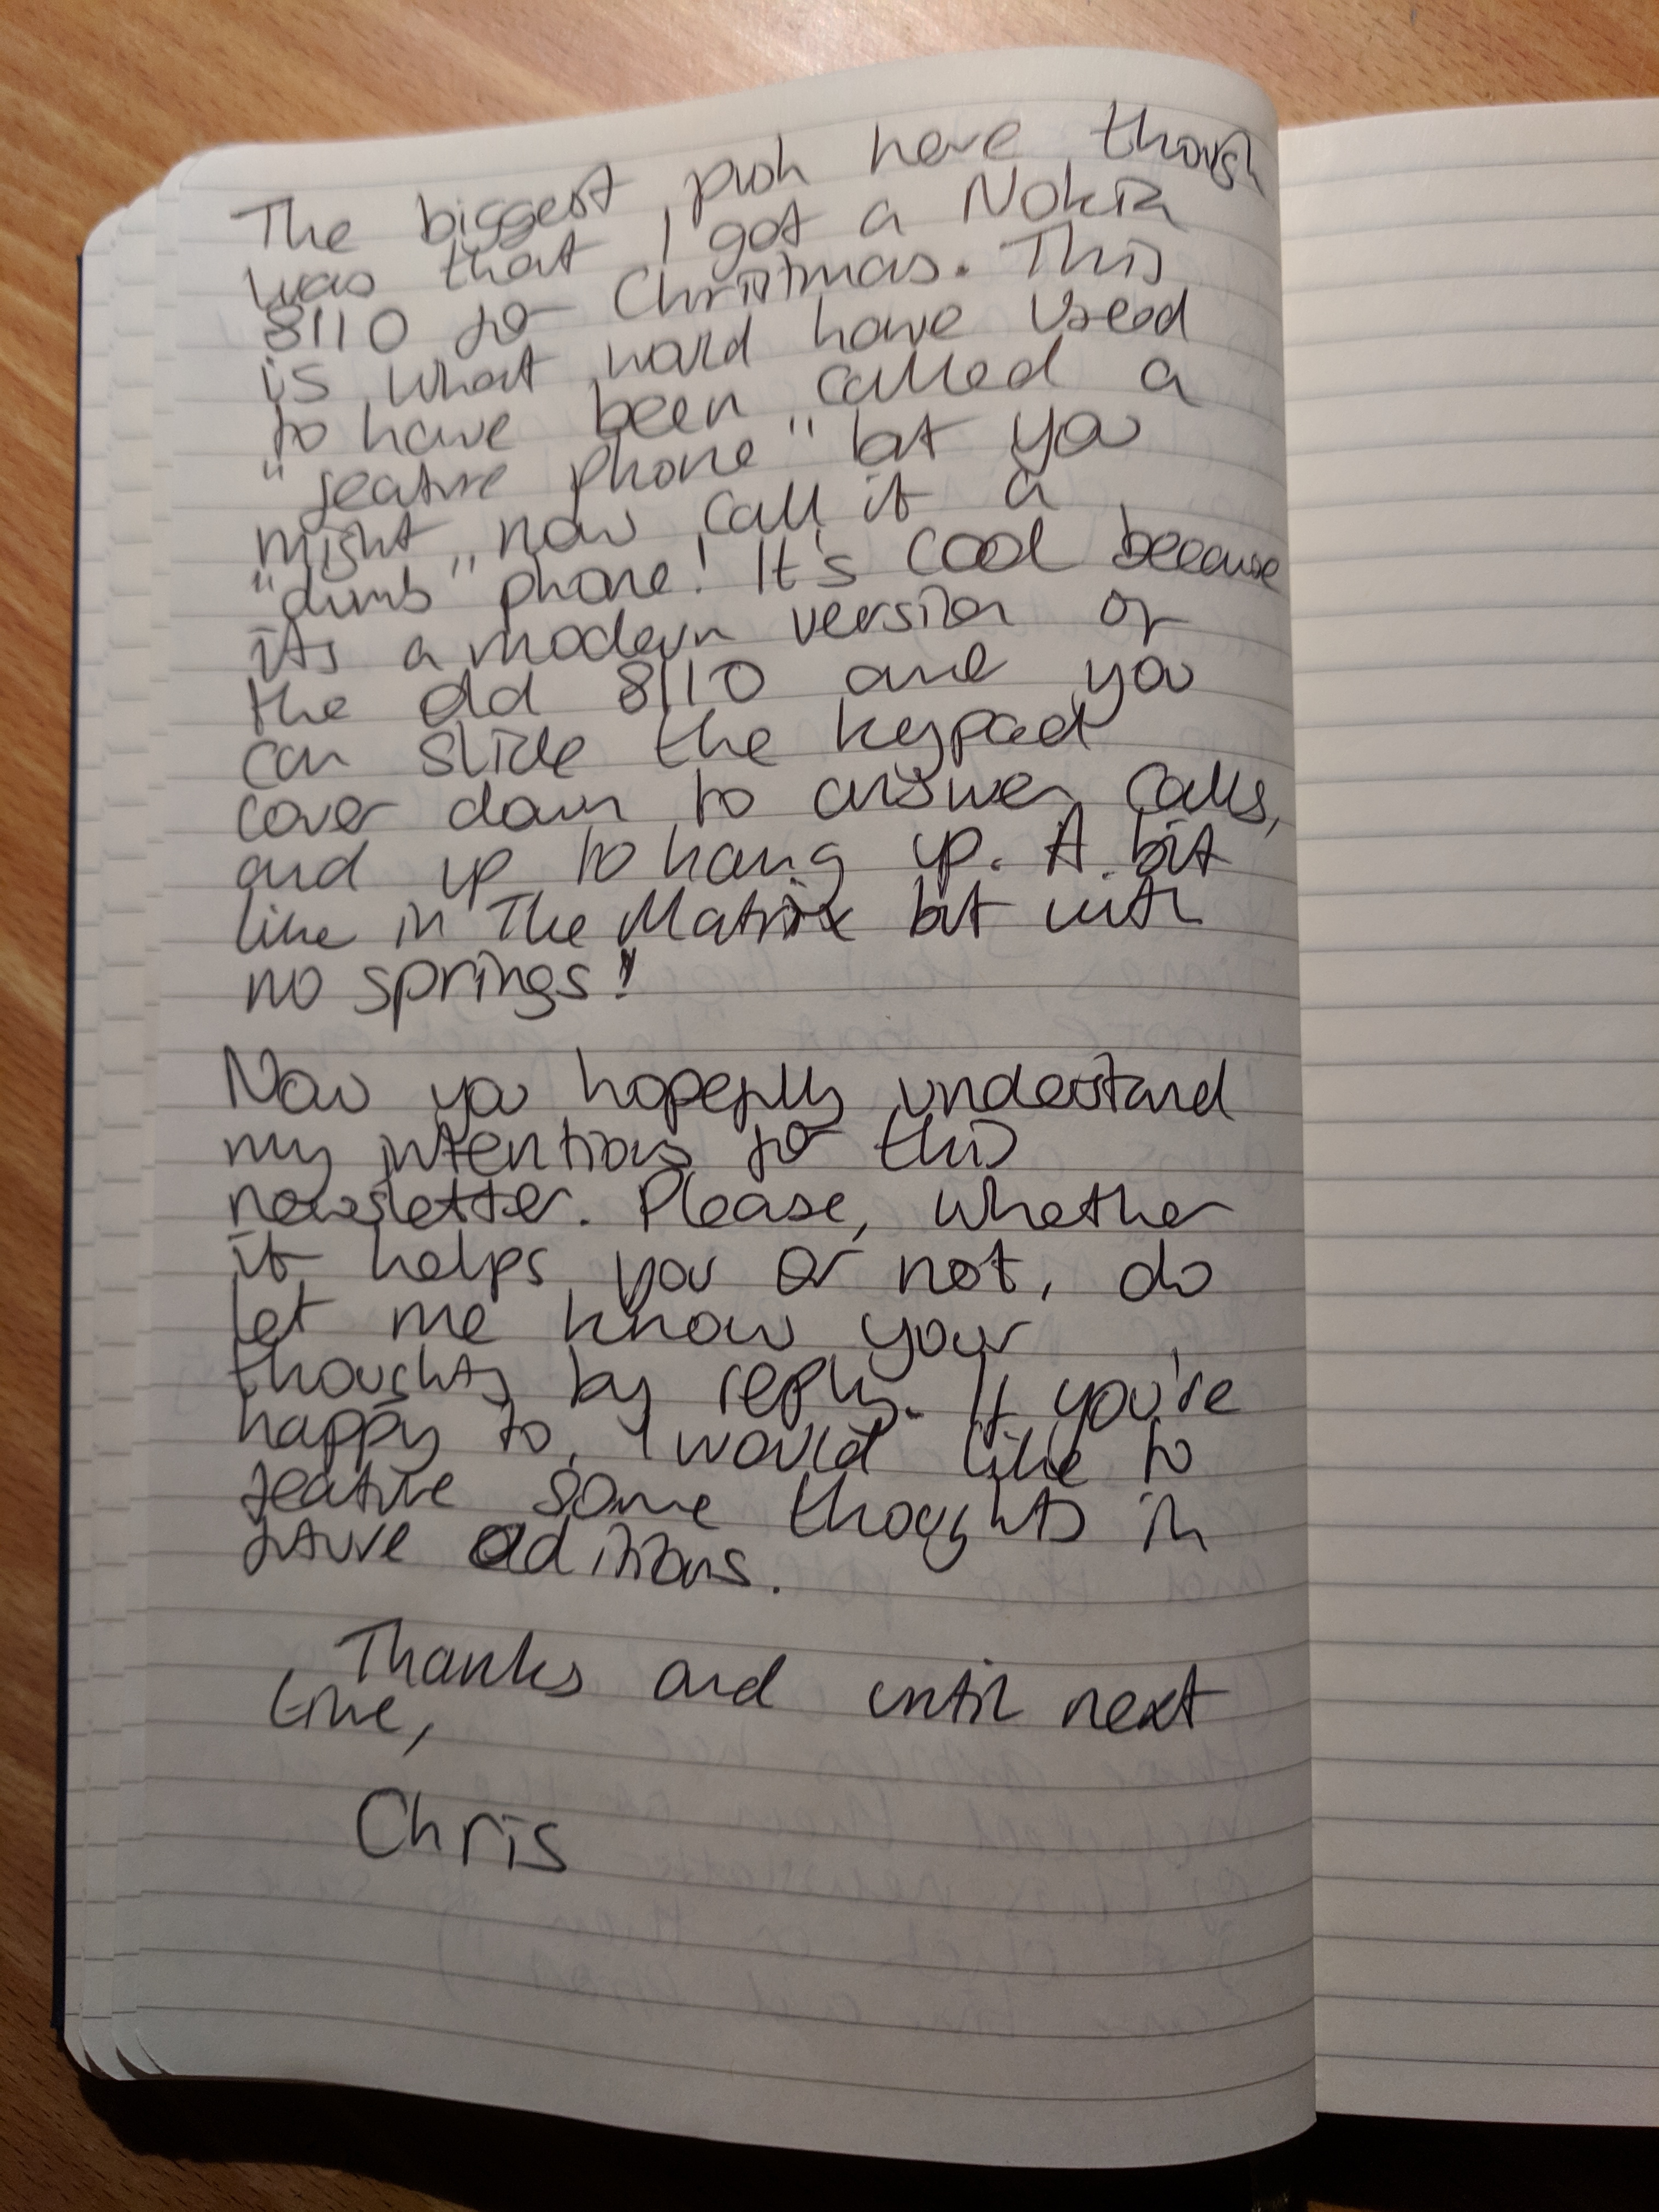 The biggest push here though
was that I got a Nokia
8110 for Christmas. This
is what would have used
to have been called a
"feature phone" but you
might now call it a
"dumb" phone! It's cool because
its a modern version of
the old 8110 and you
can slide the keypad
cover down to answer calls,
and up to hang up. A bit
like in The Matrix but with
no springs!
Now you hopefully understand
my intentions for this
newsletter. Please, whether
it helps you or not, do
let me know your
thoughts by reply. If you're
happy to, I would like to
feature some thoughts in
future editions.
Thanks and until next
time,
Chris